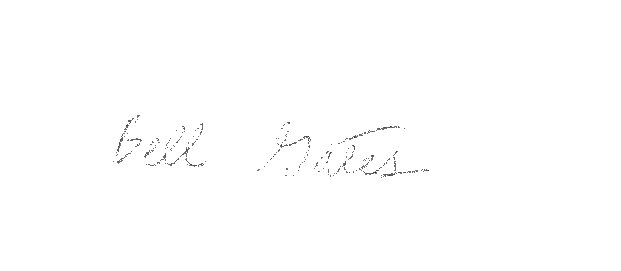 Bell Gates